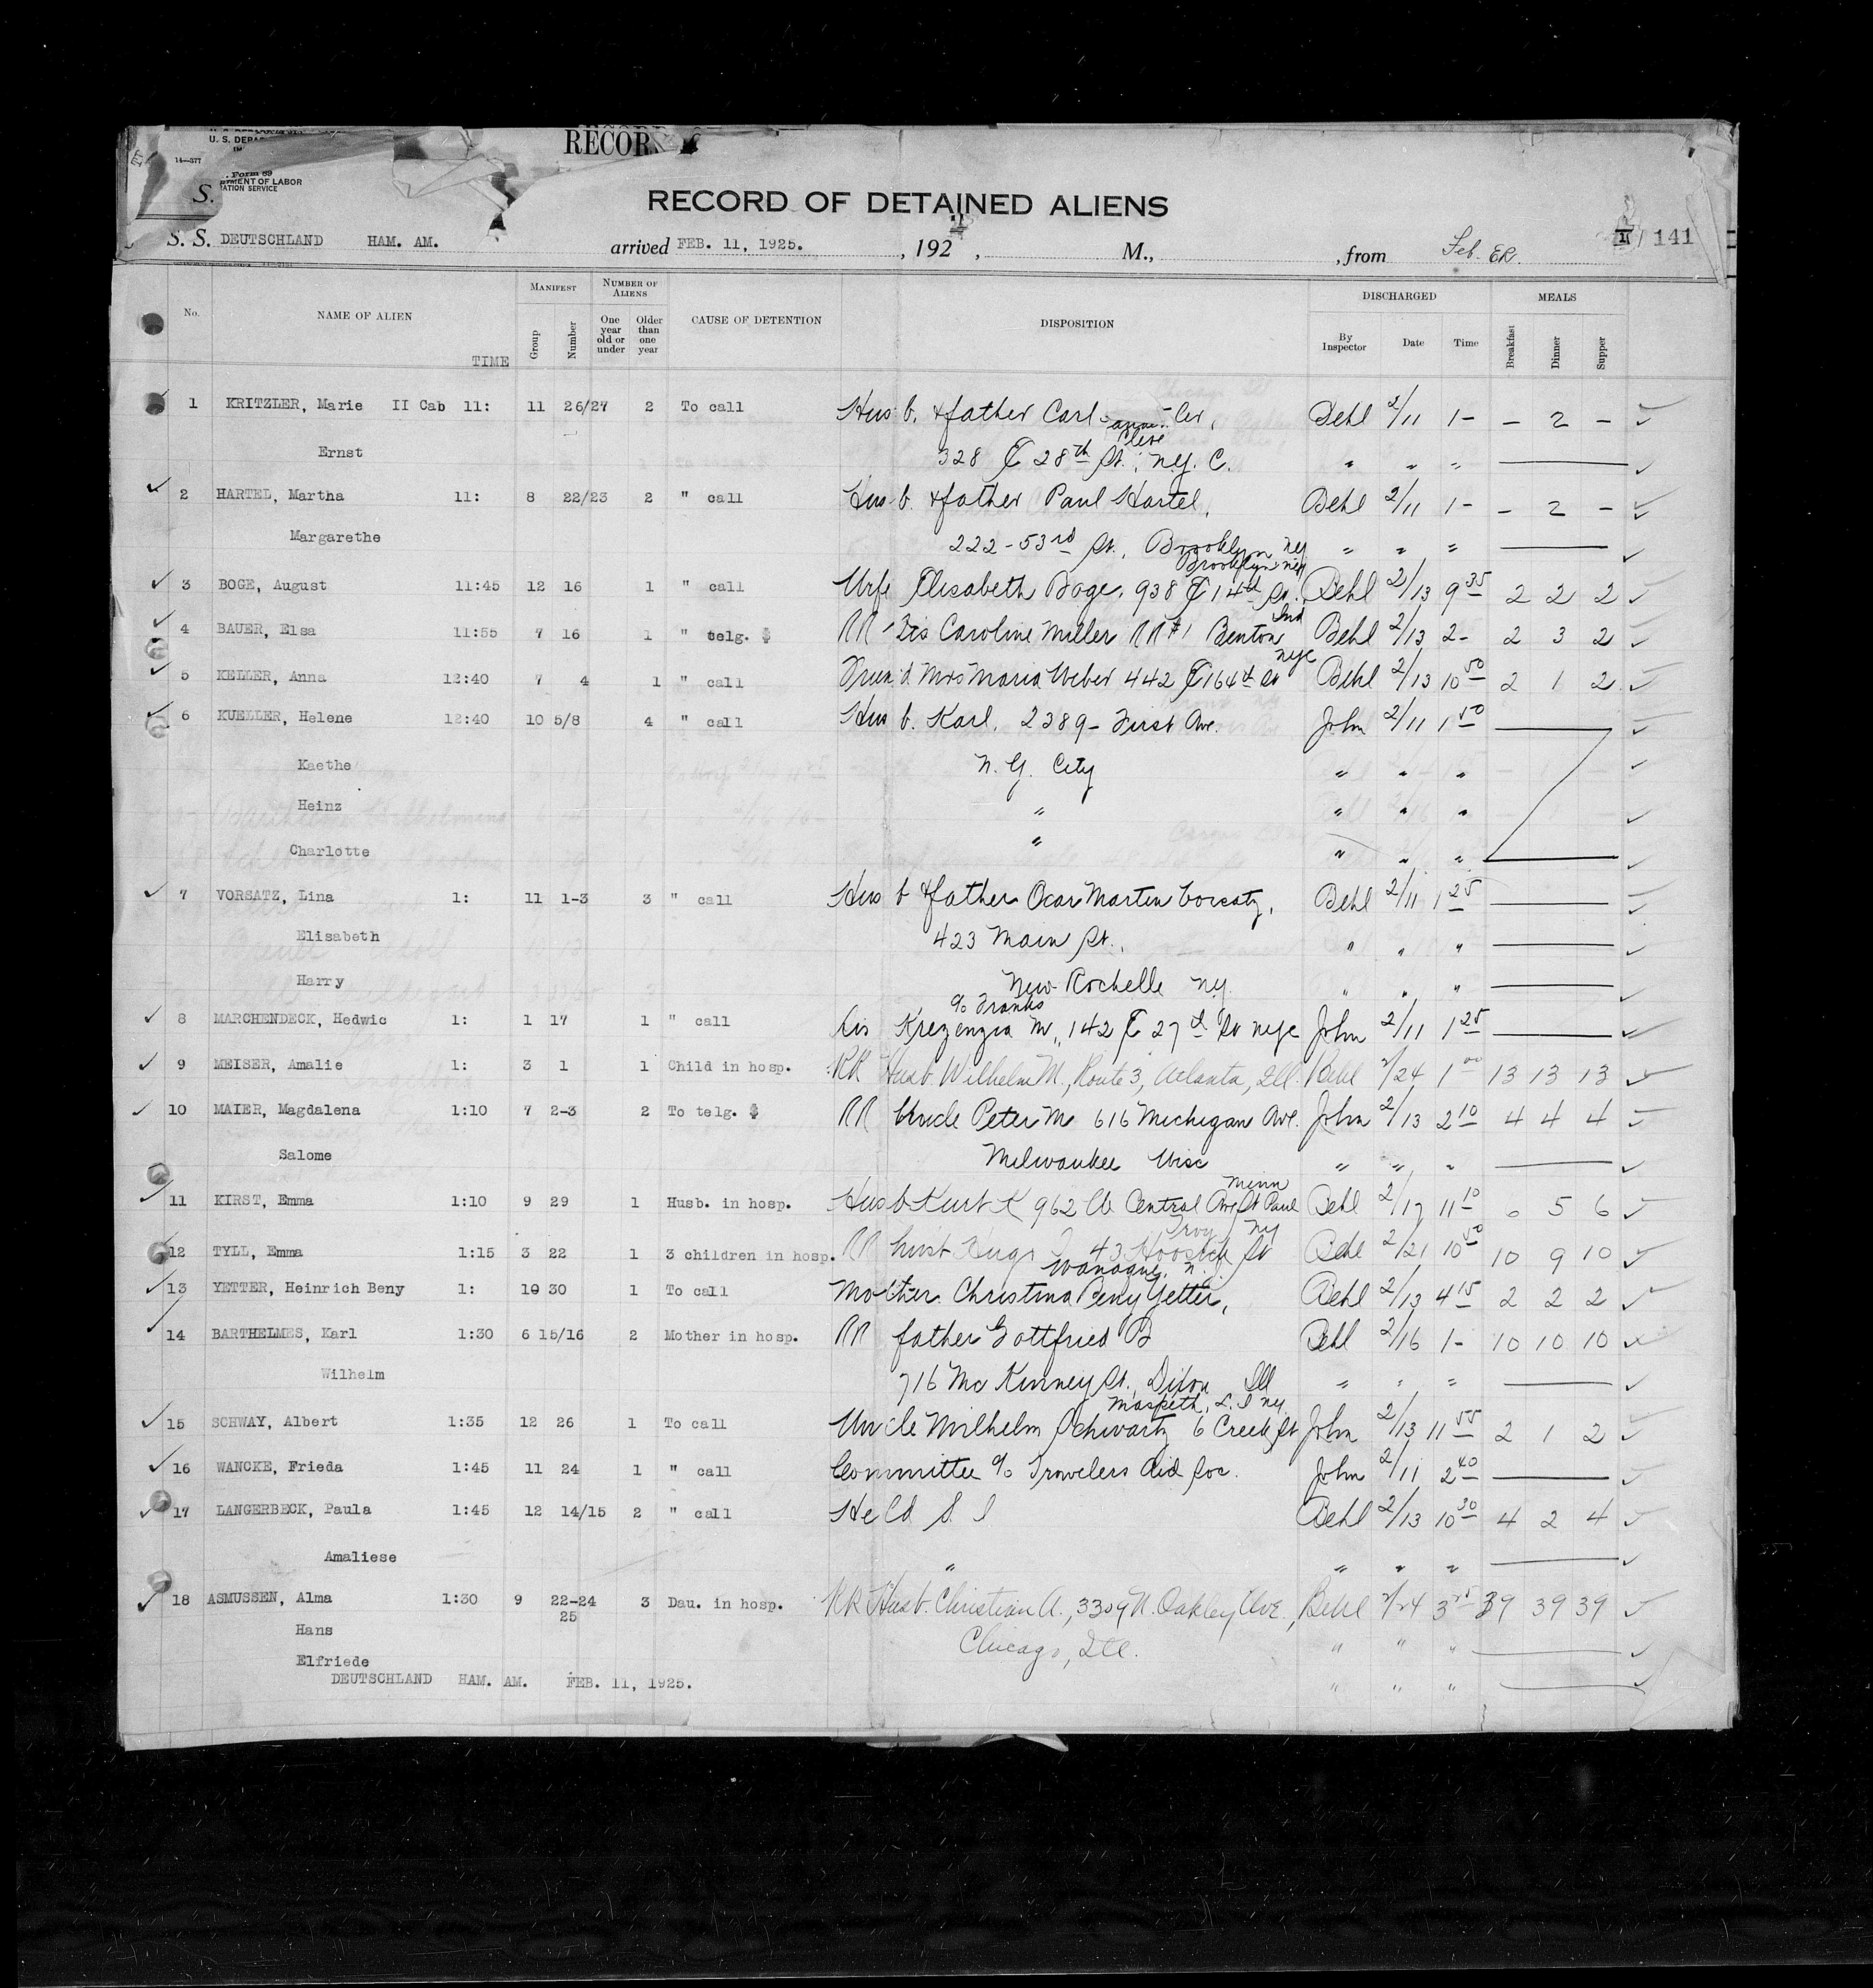 RECOR
U. S. DEPA
14—377
Form 89
TMENT OF LABOR
ATION SERVICE
S.
RECORD OF DETAINED ALIENS
S. S. DEUTSCHLAND HAM. AM. arrived FEB. 11, 1925. , 192 , M., , from Feb. ER. 141
No. NAME OF ALIEN TIME MANIFEST Group Number NUMBER OF ALIENS One year old or under Older than one year CAUSE OF DETENTION DISPOSITION DISCHARGED By Inspector Date Time MEALS Breakfast Dinner Supper
1 KRITZLER, Marie II Cab 11: 11 26/27 2 To call Husb. & father Carl Behl 2/11 1- - 2 -
Ernst 328 E 28th St. N.Y. C. " " "
2 HARTEL, Martha 11: 8 22/23 2 " call Husb. & father Paul Hartel, Behl 2/11 1- - 2 -
Margarethe 222-53rd St., Brooklyn NY " " "
Brooklyn NY
3 BOGE, August 11:45 12 16 1 " call Wife Elisabeth Boge, 938 E 14th St. Behl 2/13 9 35 2 2 2
Ind
4 BAUER, Elsa 11:55 7 16 1 " telg. RR Sis Caroline Miller RR#1 Benton Behl 2/13 2- 2 3 2
NYC
5 KELLER, Anna 12:40 7 4 1 " call Friend Mrs Maria Weber 442 E 164th St Behl 2/13 10 50 2 1 2
6 KUELLER, Helene 12:40 10 5/8 4 " call Husb. Karl, 2389- First Ave. John 2/11 1 50
Kaethe N.Y. City " " "
Heinz " " " "
Charlotte " " " "
7 VORSATZ, Lina 1: 11 1-3 3 " call Husb & father Oscar Martin Vorsatz, Behl 2/11 1 25
Elisabeth 423 Main St., " " "
Harry New Rochelle NY. " " "
c/o Franks
8 MARCHENDECK, Hedwic 1: 1 17 1 " call Sis Krezenzia M., 142 E 27th St NYC John 2/11 1 25
9 MEISER, Amalie 1: 3 1 1 Child in hosp. RR Husb. Wilhelm M., Route 3, Atlanta, Ill. Behl 2/24 1 00 13 13 13
10 MAIER, Magdalena 1:10 7 2-3 2 To telg. RR Uncle Peter M 616 Michigan Ave. John 2/13 2 10 4 4 4
Salome Milwaukee Wisc " " "
Minn
11 KIRST, Emma 1:10 9 29 1 Husb. in hosp. Husb Kurt K 962 W Central Ave St Paul Behl 2/17 11 10 6 5 6
Troy NY
12 TYLL, Emma 1:15 3 22 1 3 children in hosp. RR Hugo 43 Hoosick St Behl 2/21 10 50 10 9 10
Wanaque, N.J.
13 YETTER, Heinrich Beny 1: 10 30 1 To call Mother Christina Beny Yetter, Behl 2/13 4 15 2 2 2
14 BARTHELMES, Karl 1:30 6 15/16 2 Mother in hosp. RR father Gottfried B Behl 2/16 1- 10 10 10
Wilhelm 716 Mc Kinney St., Dixon Ill " " "
Maspeth, L.I NY.
15 SCHWAY, Albert 1:35 12 26 1 To call Uncle Wilhelm Schwartz 6 Creek St John 2/13 11 55 2 1 2
16 WANCKE, Frieda 1:45 11 24 1 " call Committee c/o Travelers Aid Soc. John 2/11 2 40
17 LANGERBECK, Paula 1:45 12 14/15 2 " call Held S. I Behl 2/13 10 30 4 2 4
Amaliese " " " "
18 ASMUSSEN, Alma 1:30 9 22-24 3 Dau. in hosp. RR Husb. Christian A., 3309 N. Oakley Ave., Behl 2/24 3 39 39 39
25
Hans Chicago, Ill. " " "
Elfriede
DEUTSCHLAND HAM. AM. FEB. 11, 1925. " " "